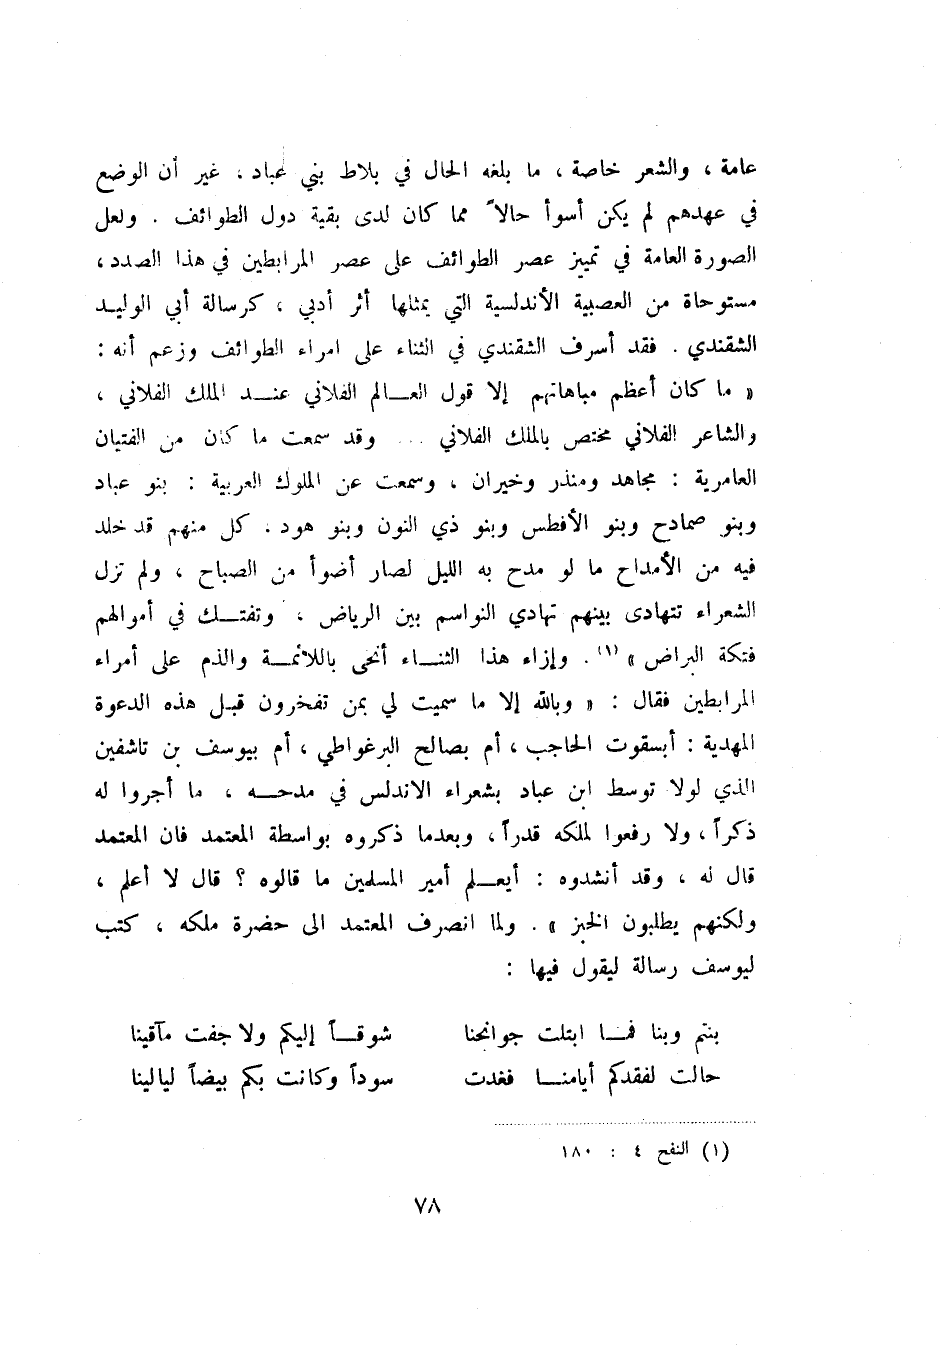 عامة ، والشعر خاصة ، ما بلغه الحال في بلاط بني عباد ، غير أن الوضع
في عهدهم لم يكن أسوأ حالاً مما كان لدى بقية دول الطوائف . ولعل
الصورة العامة في تمييز عصر الطوائف على عصر المرابطين في هذا الصدد ،
مستوحاة من العصبية الأندلسية التي يمثلها أثر أدبي ، كرسالة أبي الوليد
الشقندي . فقد أسرف الشقندي في الثناء على امراء الطوائف وزعم أنه :
« ما كان أعظم مباهاتهم إلا قول العالم الفلاني عند الملك الفلاني ،
والشاعر الفلاني مختص بالملك الفلاني ... وقد سمعت ما كان من الفتيان
العامرية : مجاهد ومنذر وخيران ، وسمعت عن الملوك العربية : بنو عباد
وبنو صمادح وبنو الأفطس وبنو ذي النون وبنو هود . كل منهم قد خلد
فيه من الأمداح ما لو مدح به الليل لصار أضوأ من الصباح ، ولم تزل
الشعراء تتهادى بينهم تهادي النواسم بين الرياض ، وتفتك في أموالهم
فتكة البراض » (١) . وإزاء هذا الثناء أنحى باللائمة والذم على أمراء
المرابطين فقال : « وبالله إلا ما سميت لي بمن تفخرون قبل هذه الدعوة
المهدية : أبسقوت الحاجب ، أم بصالح البرغواطي ، أم بيوسف بن تاشفين
الذي لولا توسط ابن عباد بشعراء الاندلس في مدحه ، ما أجروا له
ذكراً ، ولا رفعوا لملكه قدراً ، وبعدما ذكروه بواسطة المعتمد فان المعتمد
قال له ، وقد أنشدوه : أيعلم أمير المسلمين ما قالوه ؟ قال لا أعلم ،
ولكنهم يطلبون الخبز » . ولما انصرف المعتمد الى حضرة ملكه ، كتب
ليوسف رسالة ليقول فيها :
بنتم وبنا فما ابتلت جوانحنا شوقاً إليكم ولا جفت مآقينا
حالت لفقدكم أيامنا فغدت سوداً وكانت بكم بيضاً ليالينا
(١) النفح ٤ : ١٨٠
٧٨